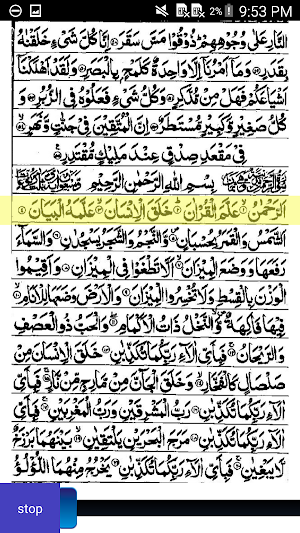 2% 9:53 PM
النَّارِ عَلٰى وُجُوْهِهِمْ ذُوْقُوْا مَسَّ سَقَرَ ۝ اِنَّا كُلَّ شَيْءٍ خَلَقْنٰهُ
بِقَدَرٍ ۝ وَمَاۤ اَمْرُنَاۤ اِلَّا وَاحِدَةٌ كَلَمْحٍۭ بِالْبَصَرِ ۝ وَلَقَدْ اَهْلَكْنَاۤ
اَشْيَاعَكُمْ فَهَلْ مِنْ مُّدَّكِرٍ ۝ وَكُلُّ شَيْءٍ فَعَلُوْهُ فِى الزُّبُرِ ۝ وَ
كُلُّ صَغِيْرٍ وَّكَبِيْرٍ مُّسْتَطَرٌ ۝ اِنَّ الْمُتَّقِيْنَ فِيْ جَنّٰتٍ وَّنَهَرٍ ۝
فِيْ مَقْعَدِ صِدْقٍ عِنْدَ مَلِيْكٍ مُّقْتَدِرٍ ۝
بِسْمِ اللّٰهِ الرَّحْمٰنِ الرَّحِيْمِ
اَلرَّحْمٰنُ ۝ عَلَّمَ الْقُرْاٰنَ ۝ خَلَقَ الْاِنْسَانَ ۝ عَلَّمَهُ الْبَيَانَ ۝
اَلشَّمْسُ وَالْقَمَرُ بِحُسْبَانٍ ۝ وَّالنَّجْمُ وَالشَّجَرُ يَسْجُدٰنِ ۝ وَالسَّمَآءَ
رَفَعَهَا وَوَضَعَ الْمِيْزَانَ ۝ اَلَّا تَطْغَوْا فِى الْمِيْزَانِ ۝ وَاَقِيْمُوا
الْوَزْنَ بِالْقِسْطِ وَلَا تُخْسِرُوا الْمِيْزَانَ ۝ وَالْاَرْضَ وَضَعَهَا لِلْاَنَامِ ۝
فِيْهَا فَاكِهَةٌ وَّالنَّخْلُ ذَاتُ الْاَكْمَامِ ۝ وَالْحَبُّ ذُو الْعَصْفِ
وَالرَّيْحَانُ ۝ فَبِاَيِّ اٰلَآءِ رَبِّكُمَا تُكَذِّبٰنِ ۝ خَلَقَ الْاِنْسَانَ مِنْ
صَلْصَالٍ كَالْفَخَّارِ ۝ وَخَلَقَ الْجَآنَّ مِنْ مَّارِجٍ مِّنْ نَّارٍ ۝ فَبِاَيِّ
اٰلَآءِ رَبِّكُمَا تُكَذِّبٰنِ ۝ رَبُّ الْمَشْرِقَيْنِ وَرَبُّ الْمَغْرِبَيْنِ ۝ فَبِاَيِّ
اٰلَآءِ رَبِّكُمَا تُكَذِّبٰنِ ۝ مَرَجَ الْبَحْرَيْنِ يَلْتَقِيٰنِ ۝ بَيْنَهُمَا بَرْزَخٌ
لَّا يَبْغِيٰنِ ۝ فَبِاَيِّ اٰلَآءِ رَبِّكُمَا تُكَذِّبٰنِ ۝ يَخْرُجُ مِنْهُمَا اللُّؤْلُؤُ
stop